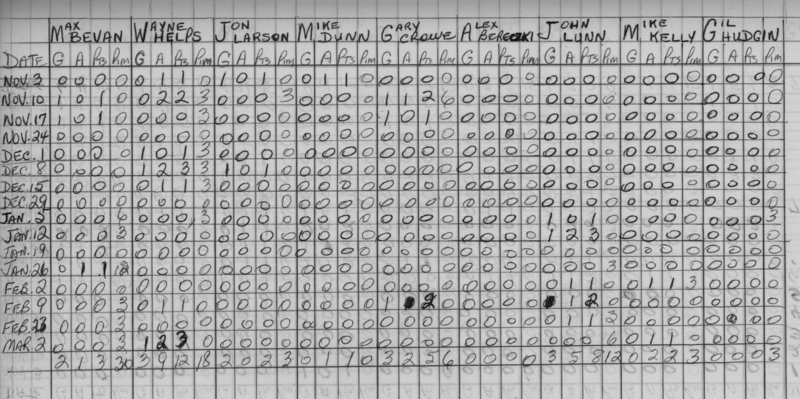 MAX BEVAN WAYNE HELPS JON LARSON MIKE DUNN GARY CROWE ALEX JOHN LYNN MIKE KELLY GIL HUDGIN
DATE G A Pts Pim G A Pts Pim G A Pts Pim G A Pts Pim G A Pts Pim G A Pts Pim G A Pts Pim G A Pts Pim G A Pts Pim
NOV. 3 0 0 0 0 0 1 1 0 1 0 1 0 0 1 1 0 0 0 0 0 0 0 0 0 0 0 0 0 0 0 0 0 0 0 0 0
NOV. 10 1 0 1 0 0 2 2 3 0 0 0 3 0 0 0 0 1 1 2 6 0 0 0 0 0 0 0 0 0 0 0 0 0 0 0 0
NOV. 17 1 0 1 0 0 0 0 3 0 0 0 0 0 0 0 0 1 0 1 0 0 0 0 0 0 0 0 0 0 0 0 0 0 0 0 0
NOV. 24 0 0 0 0 0 0 0 0 0 0 0 0 0 0 0 0 0 0 0 0 0 0 0 0 0 0 0 0 0 0 0 0 0 0 0 0
DEC. 1 0 0 0 0 1 0 1 3 0 0 0 0 0 0 0 0 0 0 0 0 0 0 0 0 0 0 0 0 0 0 0 0 0 0 0 0
DEC. 8 0 0 0 0 1 2 3 3 1 0 1 0 0 0 0 0 0 0 0 0 0 0 0 0 0 0 0 0 0 0 0 0 0 0 0 0
DEC. 15 0 0 0 0 0 1 1 3 0 0 0 0 0 0 0 0 0 0 0 0 0 0 0 0 0 0 0 0 0 0 0 0 0 0 0 0
DEC. 29 0 0 0 0 0 0 0 0 0 0 0 0 0 0 0 0 0 0 0 0 0 0 0 0 0 0 0 0 0 0 0 0 0 0 0 0
JAN. 5 0 0 0 6 0 0 0 3 0 0 0 0 0 0 0 0 0 0 0 0 0 0 0 0 1 0 1 0 0 0 0 0 0 0 0 3
JAN. 12 0 0 0 3 0 0 0 0 0 0 0 0 0 0 0 0 0 0 0 0 0 0 0 0 1 2 3 0 0 0 0 0 0 0 0 0
JAN. 19 0 0 0 0 0 0 0 0 0 0 0 0 0 0 0 0 0 0 0 0 0 0 0 0 0 0 0 0 0 0 0 0 0 0 0 0
JAN. 26 0 1 1 12 0 0 0 0 0 0 0 0 0 0 0 0 0 0 0 0 0 0 0 0 0 0 0 3 0 0 0 0 0 0 0 0
FEB. 2 0 0 0 0 0 0 0 0 0 0 0 0 0 0 0 0 0 0 0 0 0 0 0 0 0 1 1 0 0 1 1 3 0 0 0 0
FEB. 9 0 0 0 3 0 1 1 0 0 0 0 0 0 0 0 0 1 2 0 0 0 0 0 1 2 0 0 0 0 0 0 0 0 0
FEB. 23 0 0 0 3 0 0 0 0 0 0 0 0 0 0 0 0 0 0 0 0 0 0 0 0 0 1 1 3 0 0 0 0 0 0 0 0
MAR. 2 0 0 0 3 1 2 3 0 0 0 0 0 0 0 0 0 0 0 0 0 0 0 0 0 0 0 0 6 0 1 1 0 0 0 0 0
2 1 3 30 3 9 12 18 2 0 2 3 0 1 1 0 3 2 5 6 0 0 0 0 3 5 8 12 0 2 2 3 0 0 0 3